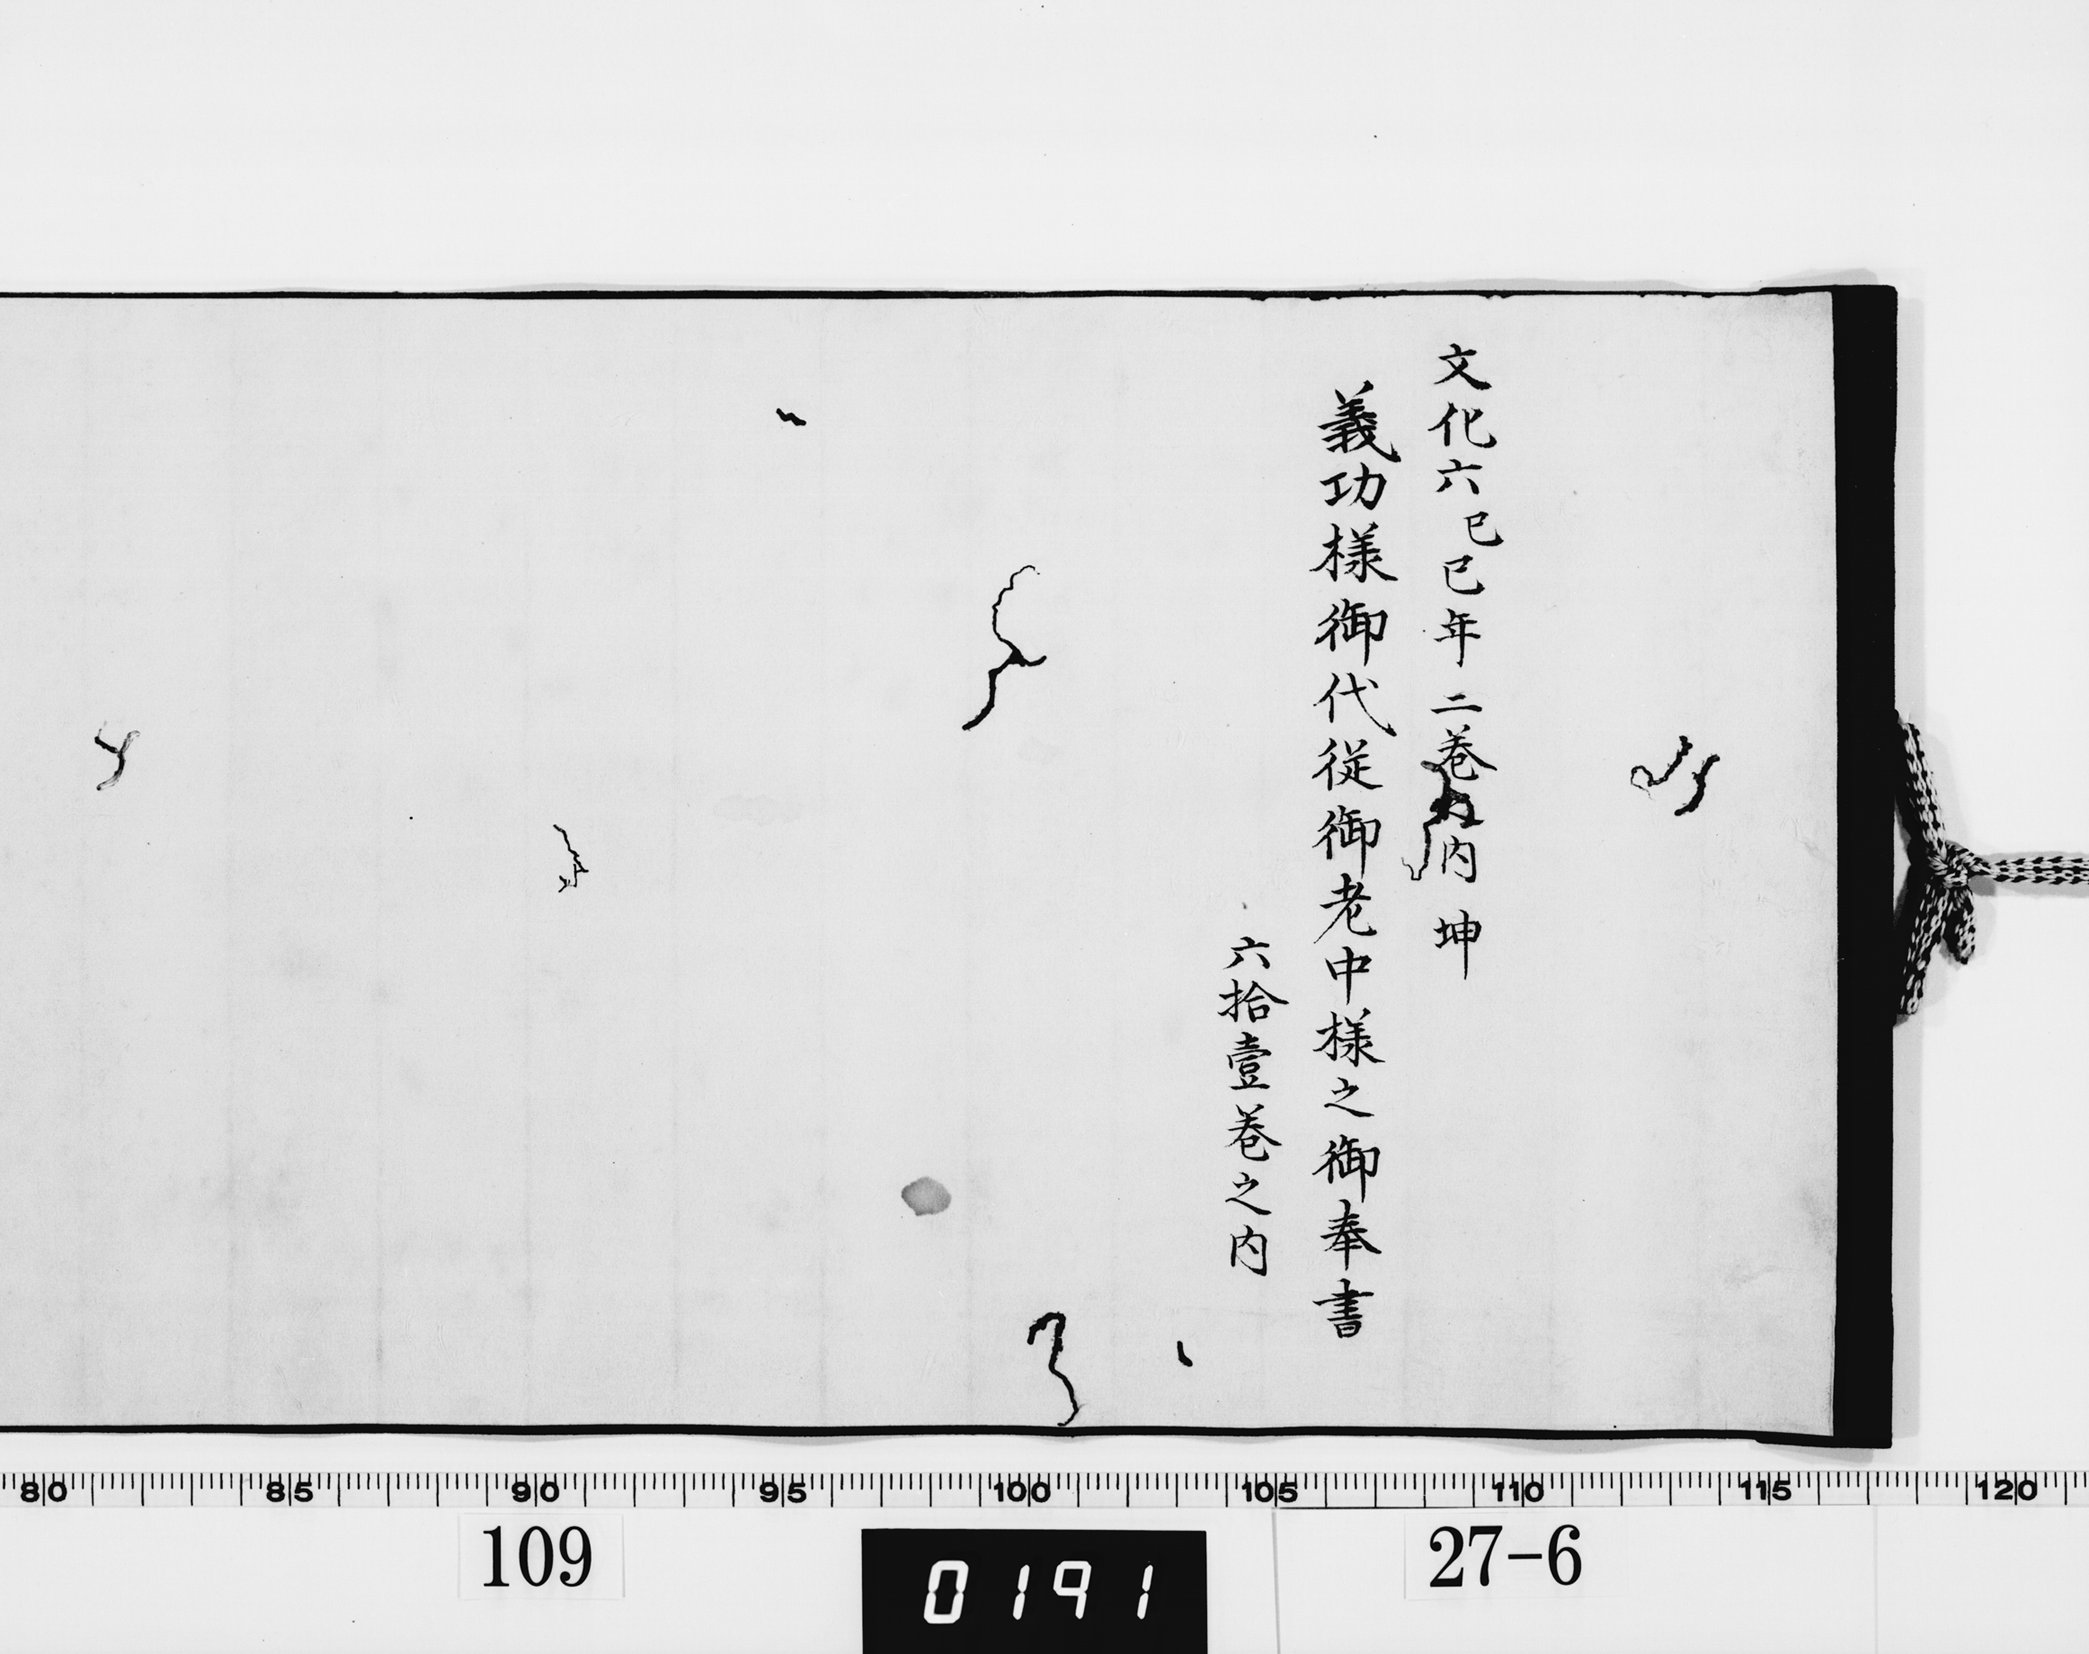 文化六己巳年 二巻内 坤
義功様御代従御老中様之御奉書
六拾壹巻之内
80 85 90 95 100 105 110 115 120
109 0191 27-6